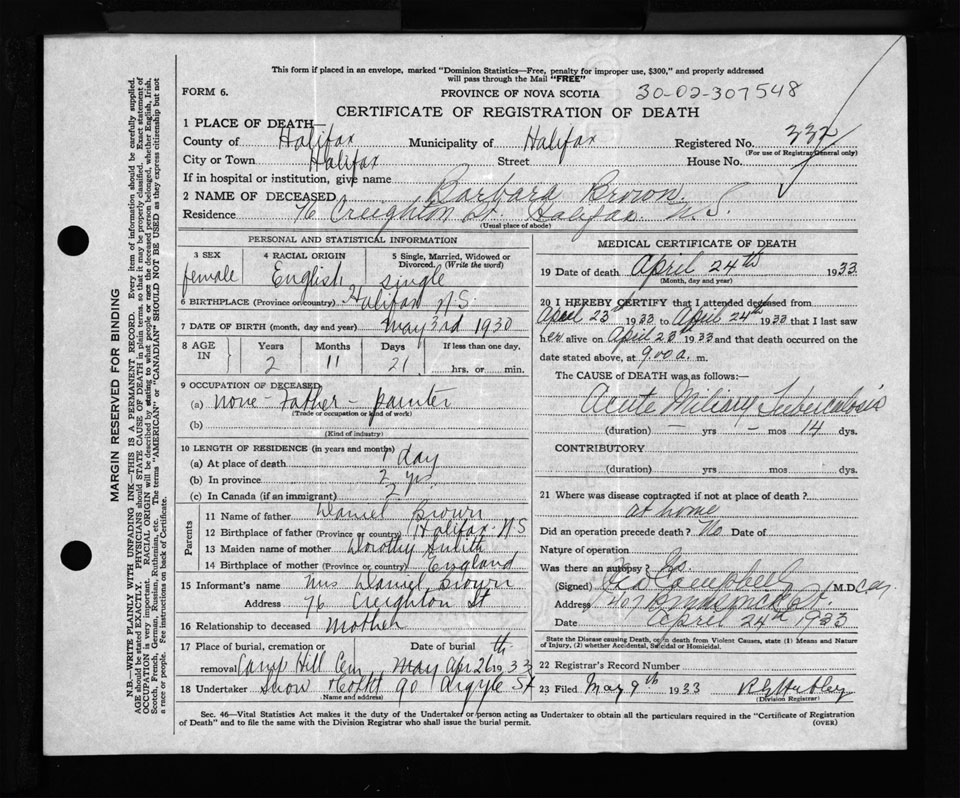 This form if placed in an envelope, marked "Dominion Statistics—Free, penalty for improper use, $300," and properly addressed
will pass through the Mail "FREE"
FORM 6.
PROVINCE OF NOVA SCOTIA
30-02-307548
CERTIFICATE OF REGISTRATION OF DEATH
1 PLACE OF DEATH—
County of Halifax Municipality of Halifax Registered No. 332
(For use of Registrar General only)
City or Town Halifax Street House No.
If in hospital or institution, give name
2 NAME OF DECEASED Barbara Brown
Residence 76 Creighton St. Halifax N.S.
(Usual place of abode)
PERSONAL AND STATISTICAL INFORMATION
3 SEX female
4 RACIAL ORIGIN English
5 Single, Married, Widowed or Divorced. (Write the word) single
6 BIRTHPLACE (Province or country) Halifax N.S.
7 DATE OF BIRTH (month, day and year) May 3rd 1930
8 AGE IN
Years Months Days If less than one day.
2 11 21 hrs. or min.
9 OCCUPATION OF DECEASED
(a) none - father - painter
(Trade or occupation or kind of work)
(b)
(Kind of industry)
10 LENGTH OF RESIDENCE (in years and months)
(a) At place of death 1 day
(b) In province 2 yrs
(c) In Canada (if an immigrant) 2
Parents
11 Name of father Daniel Brown
12 Birthplace of father (Province or country) Halifax N.S
13 Maiden name of mother Dorothy
14 Birthplace of mother (Province or country) England
15 Informant's name Mrs Daniel Brown
Address 76 Creighton St
16 Relationship to deceased Mother
17 Place of burial, cremation or removal Camp Hill Cem
Date of burial May Apr 26th 1933
18 Undertaker Snow 90 Argyle St
Name and address
MEDICAL CERTIFICATE OF DEATH
19 Date of death April 24th 1933
(Month, day and year)
20 I HEREBY CERTIFY that I attended deceased from
April 23rd 1933 to April 24th 1933 that I last saw
her alive on April 23 1933 and that death occurred on the
date stated above, at 9.00 a. m.
The CAUSE OF DEATH was as follows:—
Acute Miliary Tuberculosis
(duration) – yrs – mos 14 dys.
CONTRIBUTORY
(duration) yrs mos dys.
21 Where was disease contracted if not at place of death?
at home
Did an operation precede death? No Date of
Nature of operation
Was there an autopsy? No.
(Signed) Campbell M.D.
Address 407
Date April 24th 1933
State the Disease causing Death, or in death from Violent Causes, state (1) Means and Nature
of Injury, (2) whether Accidental, Suicidal or Homicidal.
22 Registrar's Record Number
23 Filed May 9th 1933
(Division Registrar)
Sec. 46—Vital Statistics Act makes it the duty of the Undertaker or person acting as Undertaker to obtain all the particulars required in the "Certificate of Registration
of Death" and to file the same with the Division Registrar who shall issue the burial permit.
(OVER)
MARGIN RESERVED FOR BINDING
N.B.—WRITE PLAINLY WITH UNFADING INK—THIS IS A PERMANENT RECORD. Every item of information should be carefully supplied.
AGE should be stated EXACTLY. PHYSICIANS should STATE CAUSE OF DEATH in plain terms, so that it may be properly classified. Exact statement of
OCCUPATION is very important. RACIAL ORIGIN will be described by stating to what people or race the deceased person belonged, whether English, Irish,
Scotch, French, German, Russian, Ruthenian, etc. The terms "AMERICAN" or "CANADIAN" SHOULD NOT BE USED as they express citizenship but not
a race or people. Fee instructions on back of Certificate.